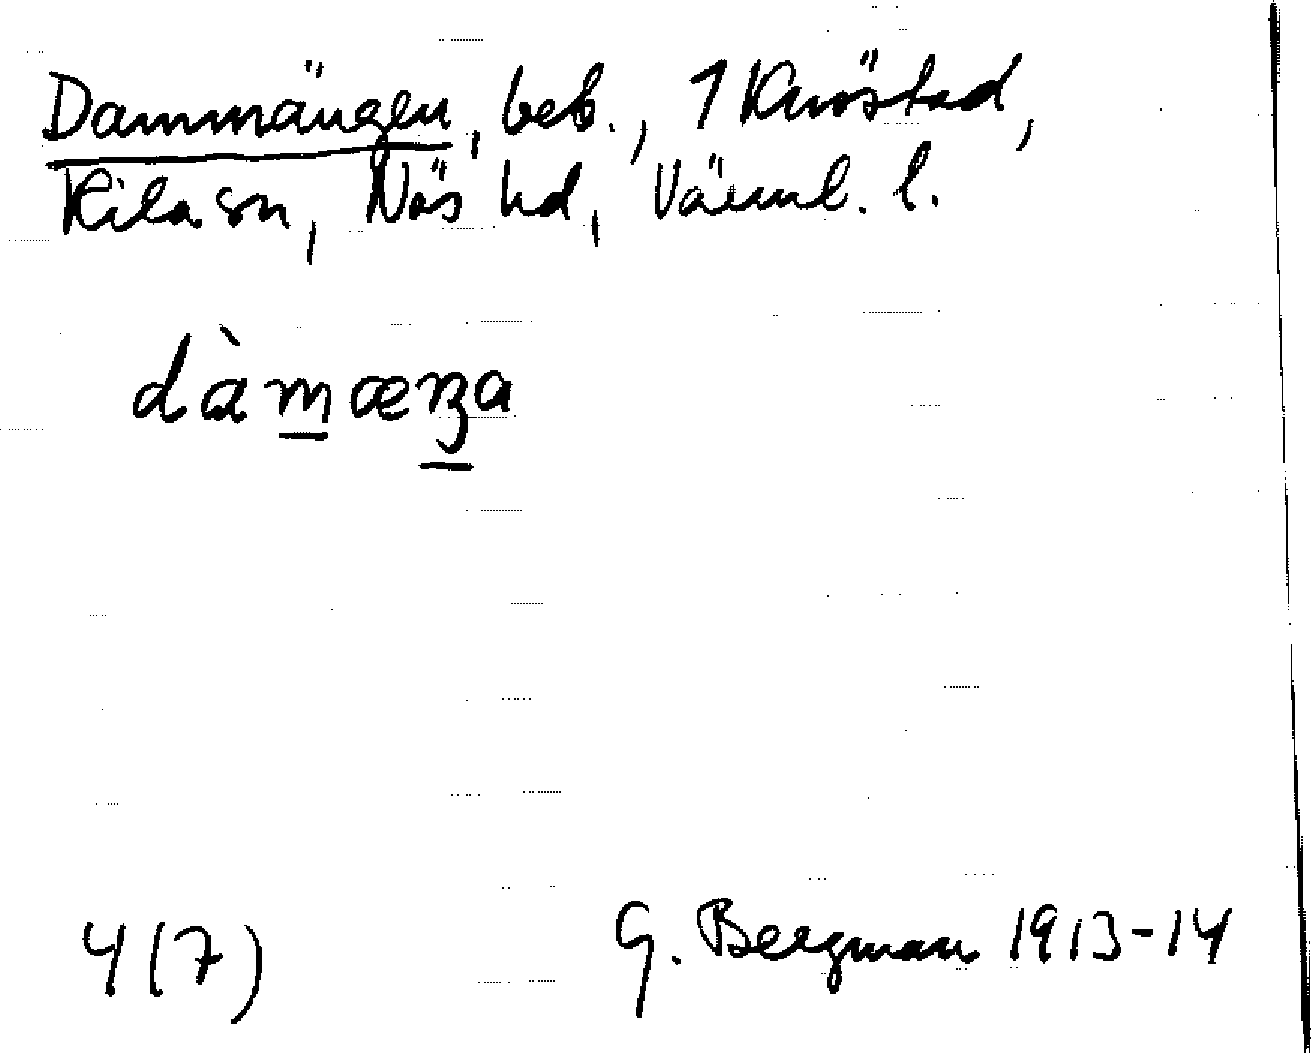 Dammängen, beb., 1 Knöstad,
Kila sn, Näs hd, Värml. l.
dàmæŋa
4(7)
G. Bergman 1913-14